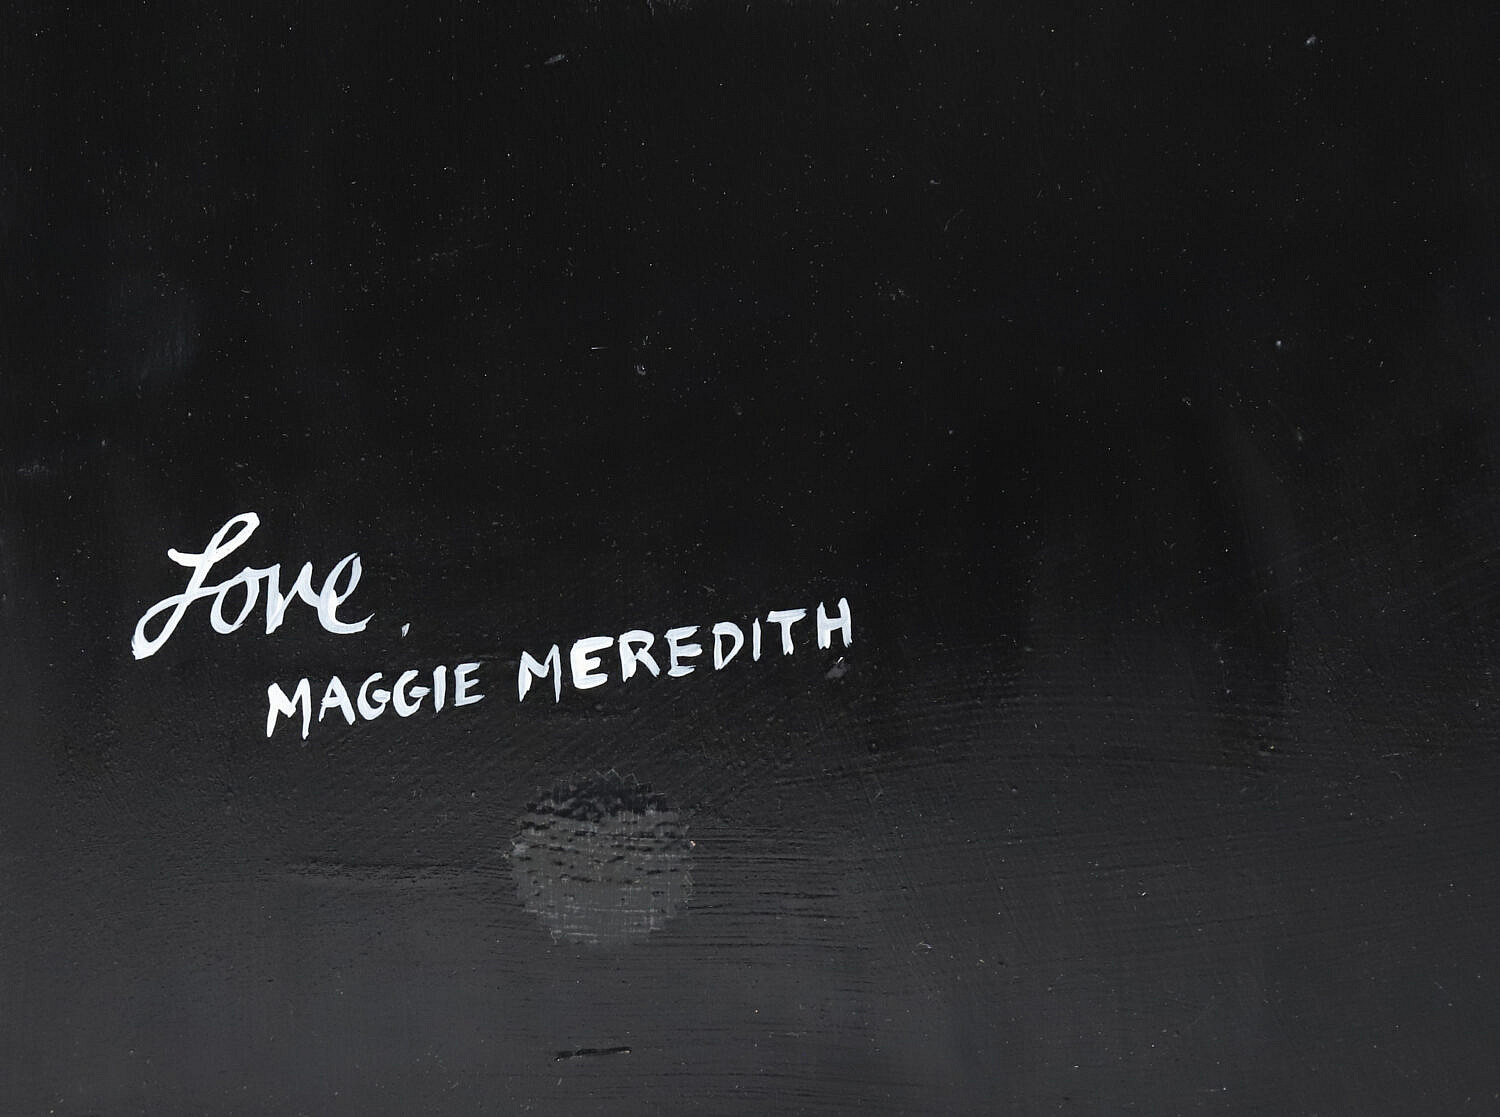 Love,
MAGGIE MEREDITH